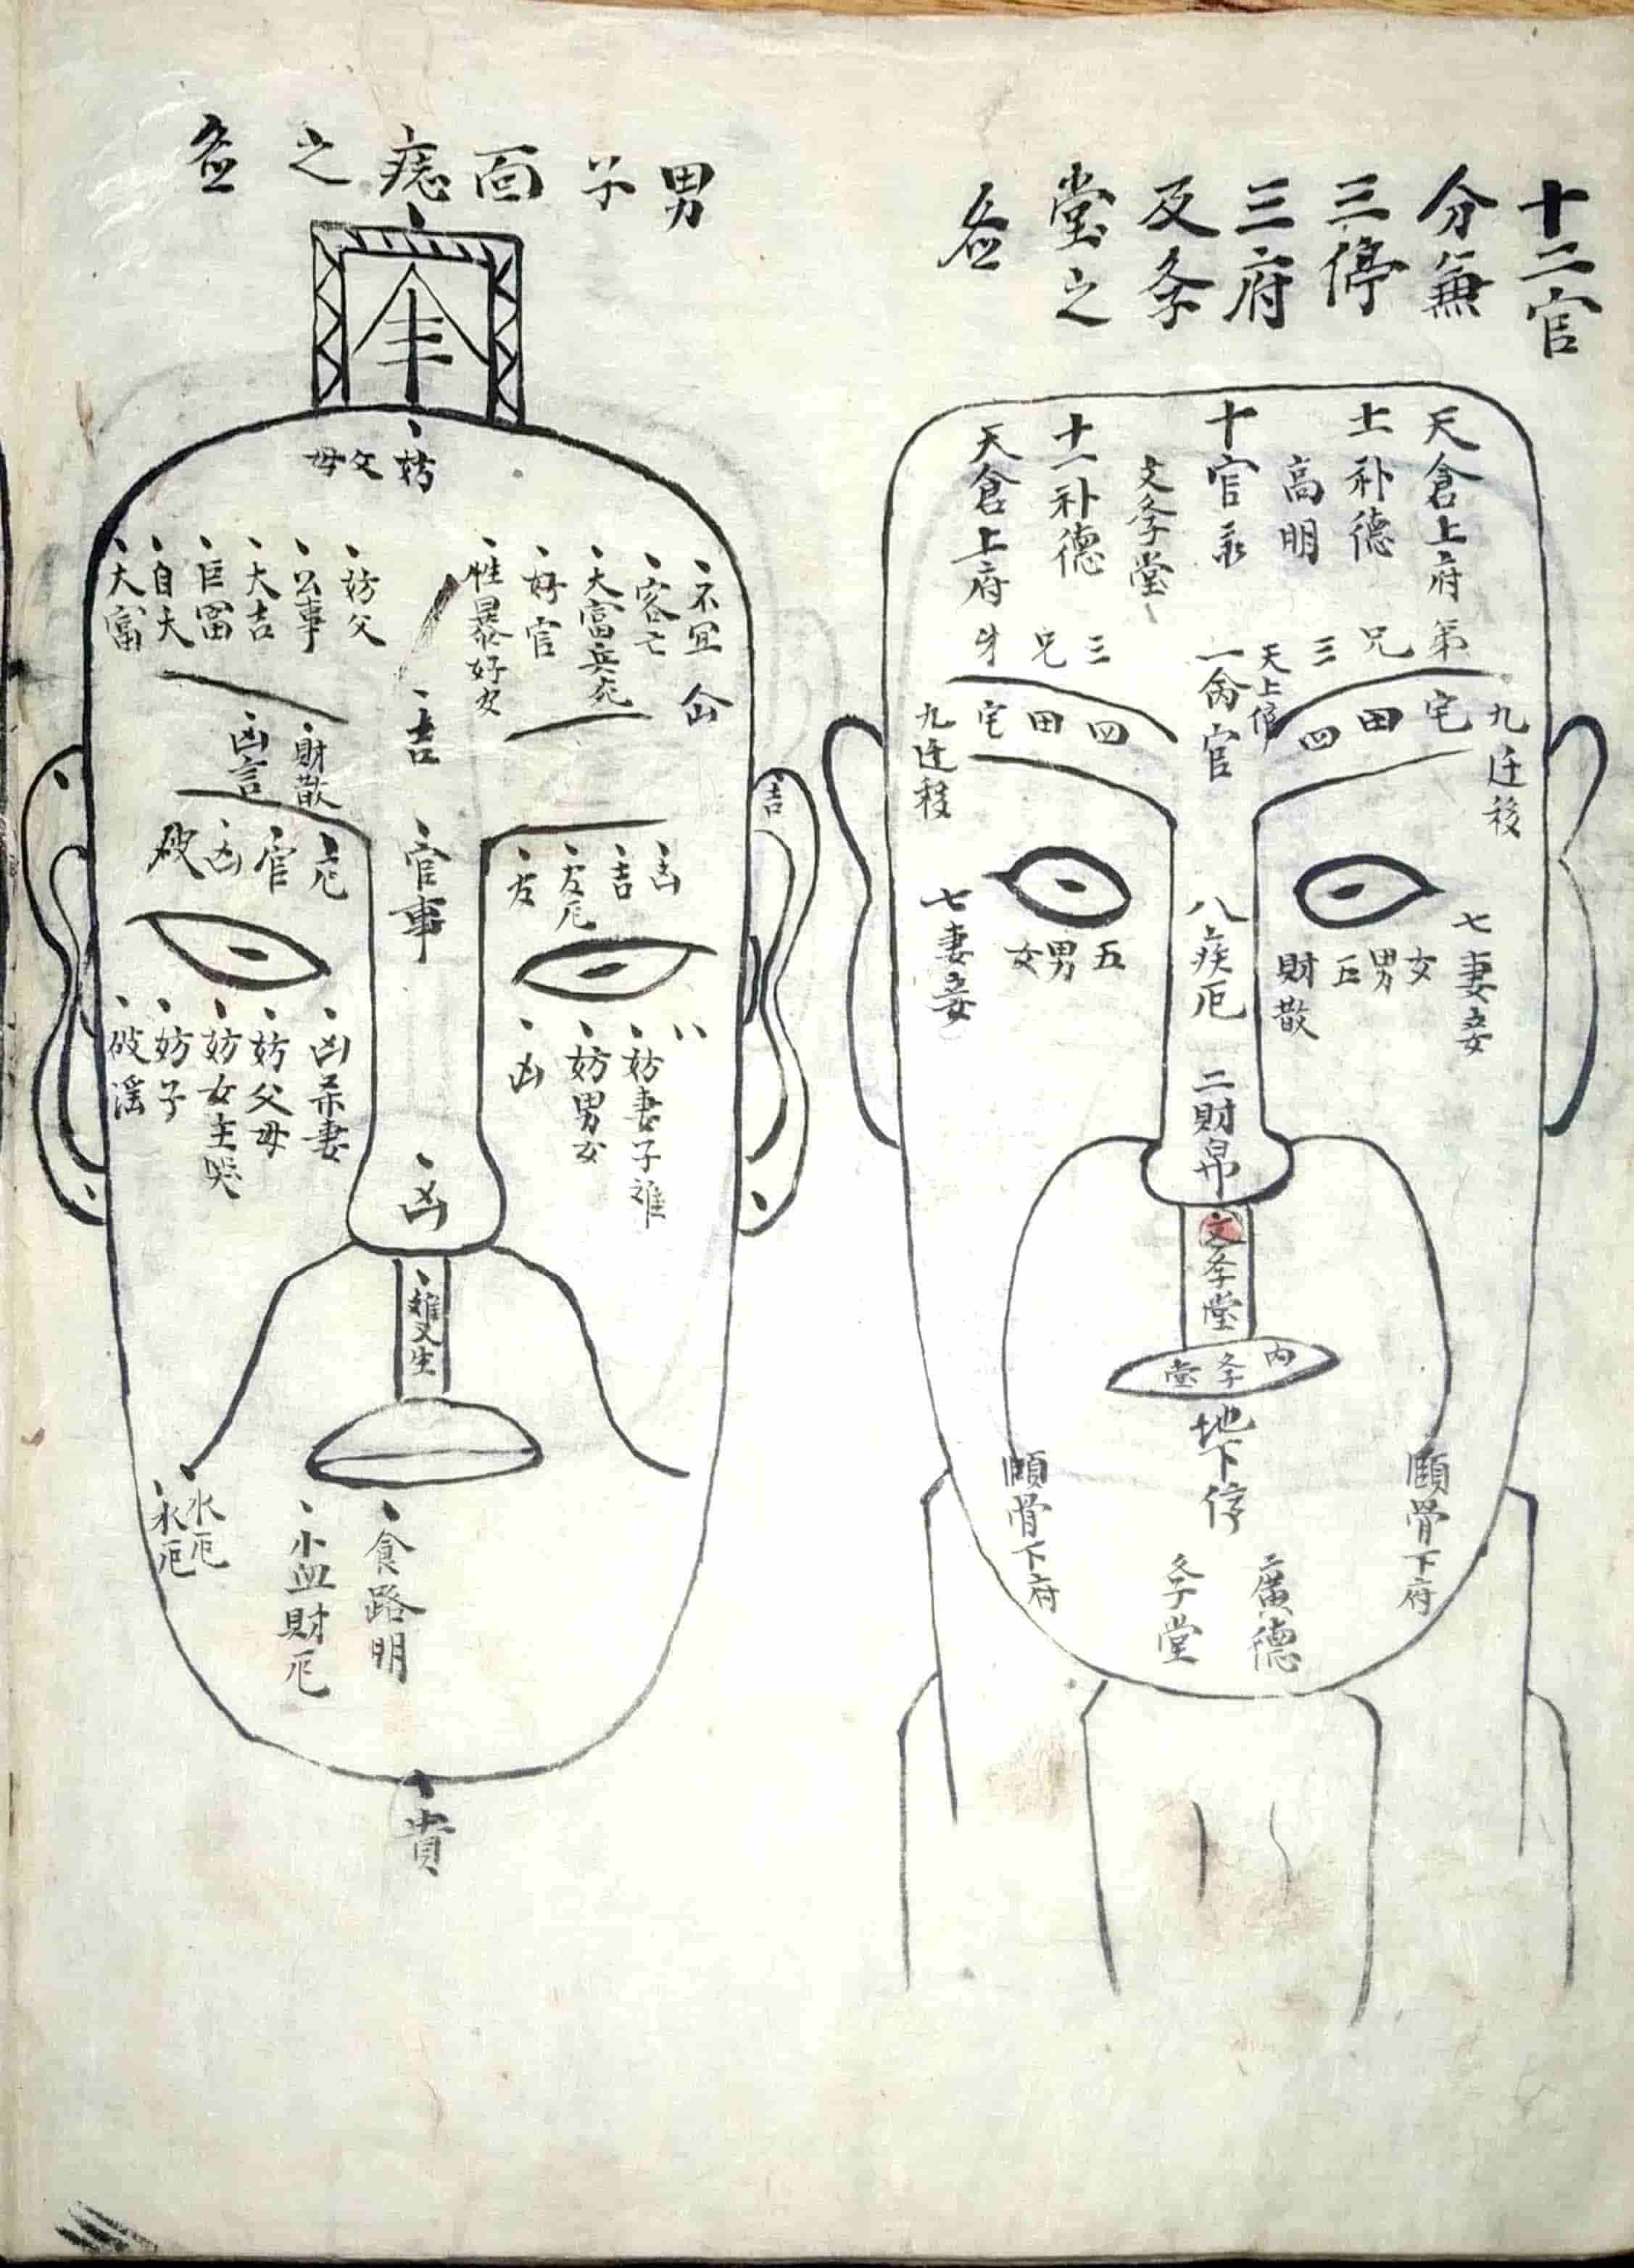 十二官
分無
三停
三府
及夅
堂之
天倉上府
十一补德
高明
十官彔
文夅堂
十一补德
天倉上府
三兄第
天上停
一命官
三兄
四田宅
四田宅
九迁移
九迁移
七妻妾
五男女
財散
八疾厄
五男女
七妻妾
二財帛
文夅堂
内夅堂
地下停
頤骨下府
頤骨下府
廣德
夅堂
男子面痣之
妨父母
不宜
客亡
大富兵死
好官
性暴好女
妨父
公事
大吉
巨富
自大
大富
吉
財散
凶言
吉
凶
吉
官事
厄
官
凶
破
妨妻子
妨男女
凶
凶杀妻
妨父母
妨女主哭
妨子
破滛
凶
雙生
水厄
水厄
食路明
小血財厄
貴